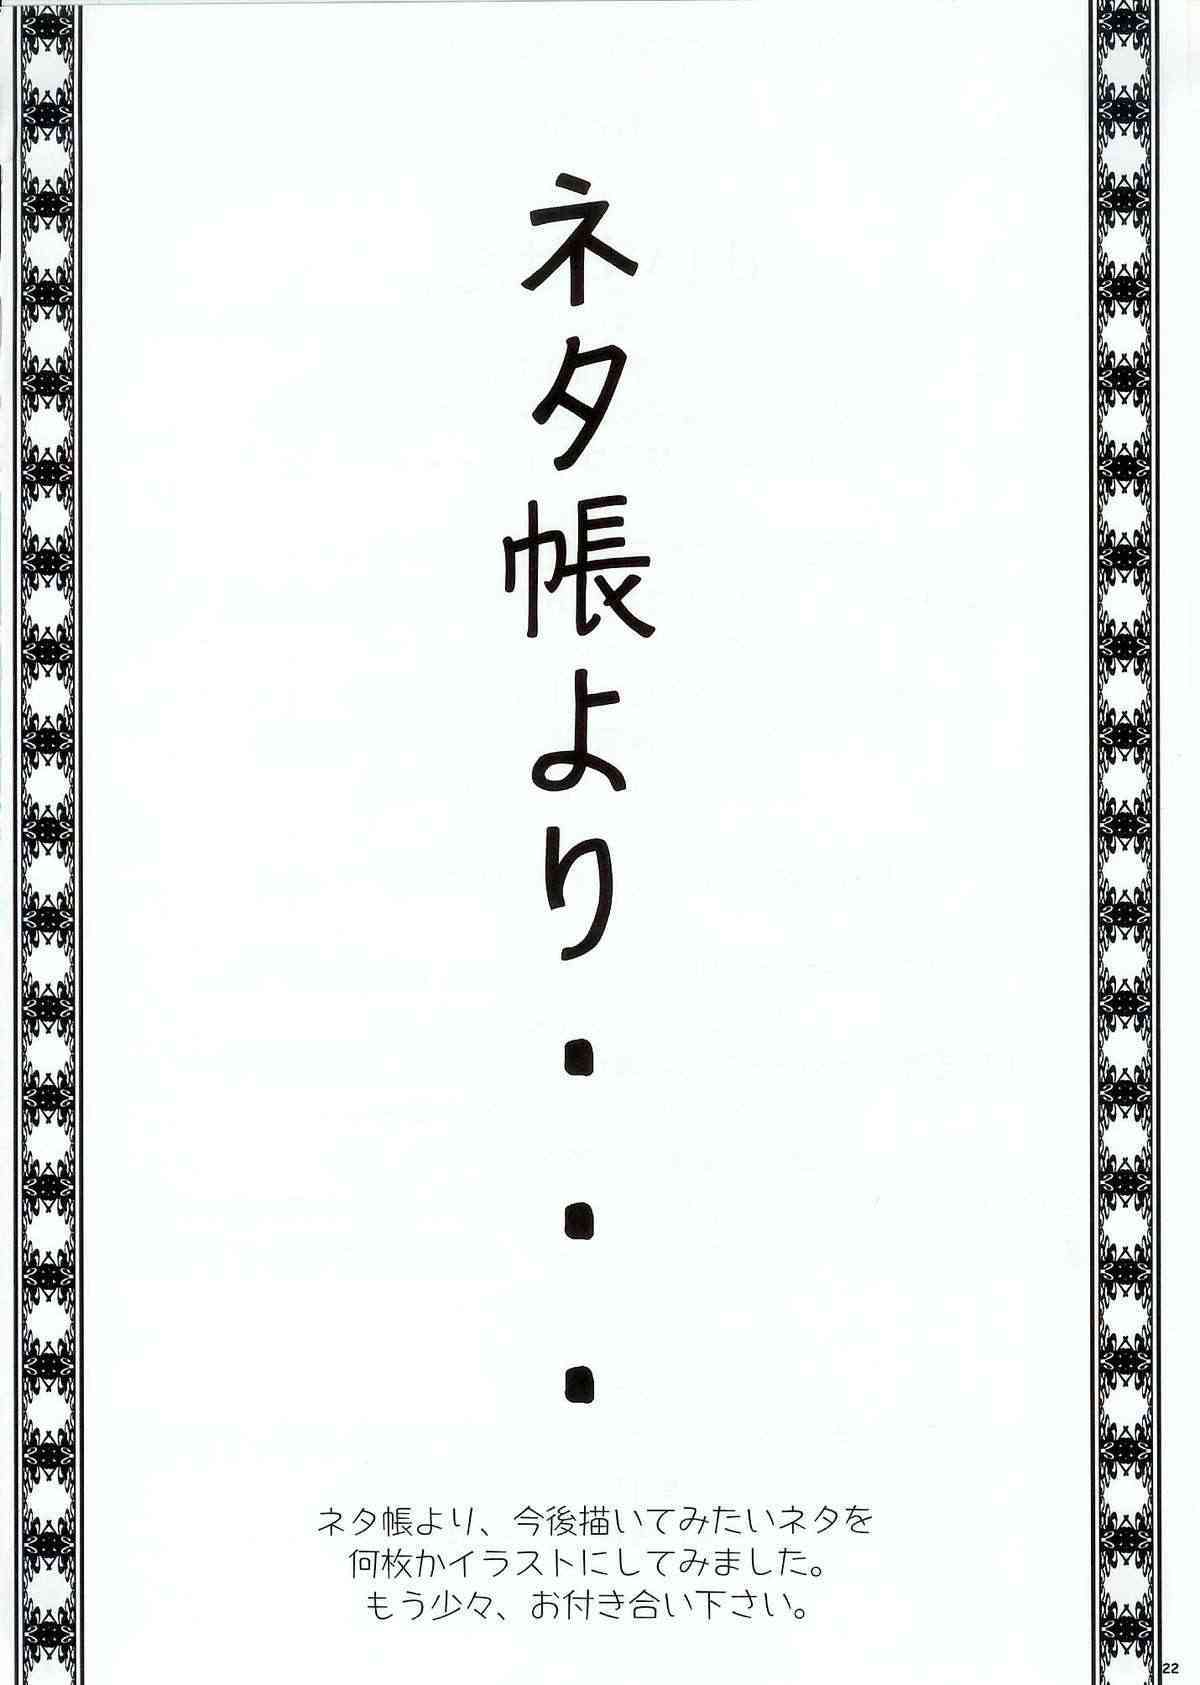 ネタ帳より・・・
ネタ帳より、今後描いてみたいネタを
何枚かイラストにしてみました。
もう少々、お付き合い下さい。
22